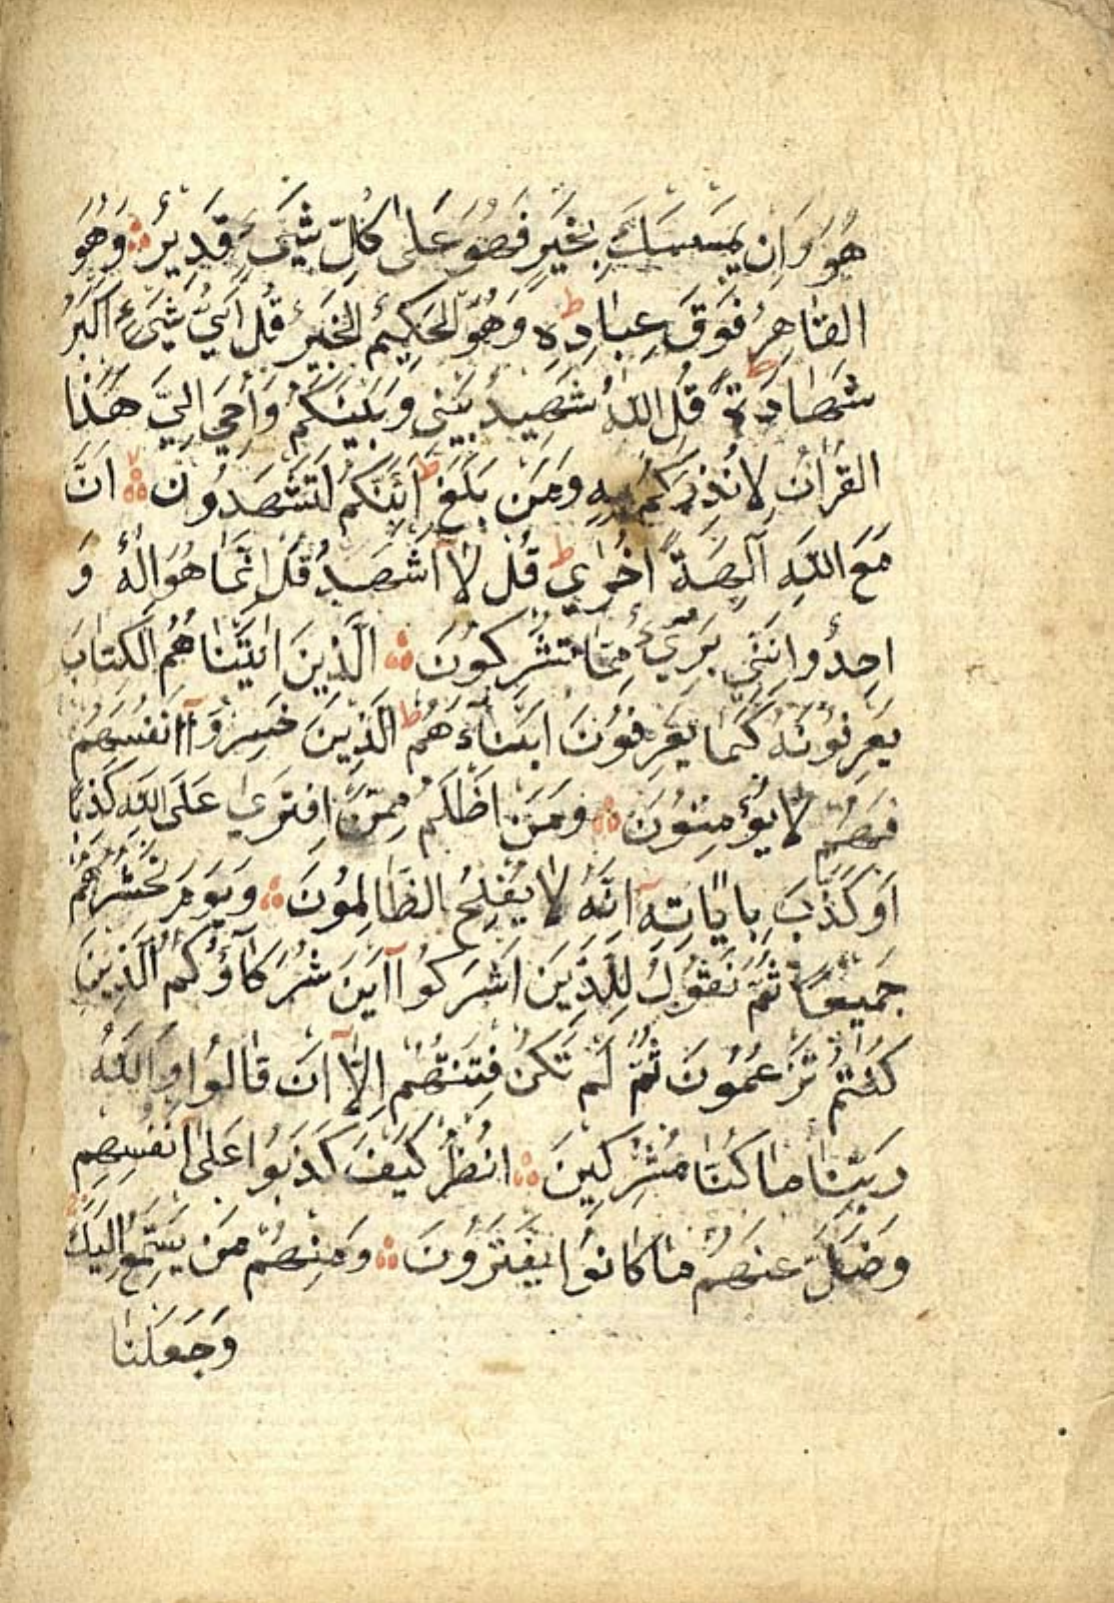 هُوَ وَاِنْ يَمْسَسْكَ بِخَيْرٍ فَهُوَ عَلٰى كُلِّ شَيْءٍ قَدِيرٌ وَهُوَ
القَاهِرُ فَوْقَ عِبَادِهٖ ط وَهُوَ الْحَكِيْمُ الْخَبِيْرُ قُلْ اَيُّ شَيْءٍ اَكْبَرُ
شَهَادَةً ط قُلِ اللّٰهُ شَهِيدٌ بَيْنِي وَبَيْنَكُمْ وَاُحِيَ اِلَيَّ هٰذَا
القُرْاٰنُ لِاُنْذِرَكُمْ بِهٖ وَمَنْ بَلَغَ ط اَئِنَّكُمْ لَتَشْهَدُونَ اَنَّ
مَعَ اللّٰهِ اٰلِهَةً اُخْرٰى ط قُلْ لَا اَشْهَدُ قُلْ اِنَّمَا هُوَ اِلٰهٌ وَ
احِدٌ وَاِنَّنِي بَرِيْءٌ مِمَّا تُشْرِكُوْنَ اَلَّذِينَ اٰتَيْنَاهُمُ الْكِتَابَ
يَعْرِفُوْنَهُ كَمَا يَعْرِفُوْنَ اَبْنَاءَهُمْ ط اَلَّذِينَ خَسِرُوْا اَنْفُسَهُمْ
فَهُمْ لَا يُؤْمِنُوْنَ وَمَنْ اَظْلَمُ مِمَّنِ افْتَرٰى عَلَى اللّٰهِ كَذِبًا
اَوْ كَذَّبَ بِاٰيَاتِهٖ اِنَّهُ لَا يُفْلِحُ الظَّالِمُوْنَ وَيَوْمَ نَحْشُرُهُمْ
جَمِيْعًا ثُمَّ نَقُوْلُ لِلَّذِيْنَ اَشْرَكُوْا اَيْنَ شُرَكَاؤُكُمُ الَّذِيْنَ
كُنْتُمْ تَزْعُمُوْنَ ثُمَّ لَمْ تَكُنْ فِتْنَتُهُمْ اِلَّا اَنْ قَالُوْا وَاللّٰهِ
رَبِّنَا مَا كُنَّا مُشْرِكِيْنَ اُنْظُرْ كَيْفَ كَذَبُوْا عَلٰى اَنْفُسِهِمْ
وَضَلَّ عَنْهُمْ مَا كَانُوْا يَفْتَرُوْنَ وَمِنْهُمْ مَنْ يَسْتَمِعُ اِلَيْكَ
وَجَعَلْنَا